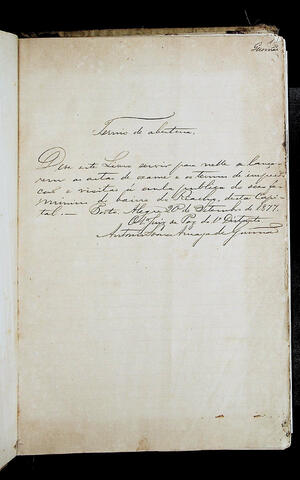 Termo de abertura.
Deve este Livro servir para nelle se lança-
rem as actas de exame e os termos de inspec-
ção e visitas á aula publica do sexo fe-
minino do bairro do Riacho, desta Capi-
tal. — Porto Alegre 20 de Setembro de 1877.
Juiz de Paz do 1º Districto
Antonio